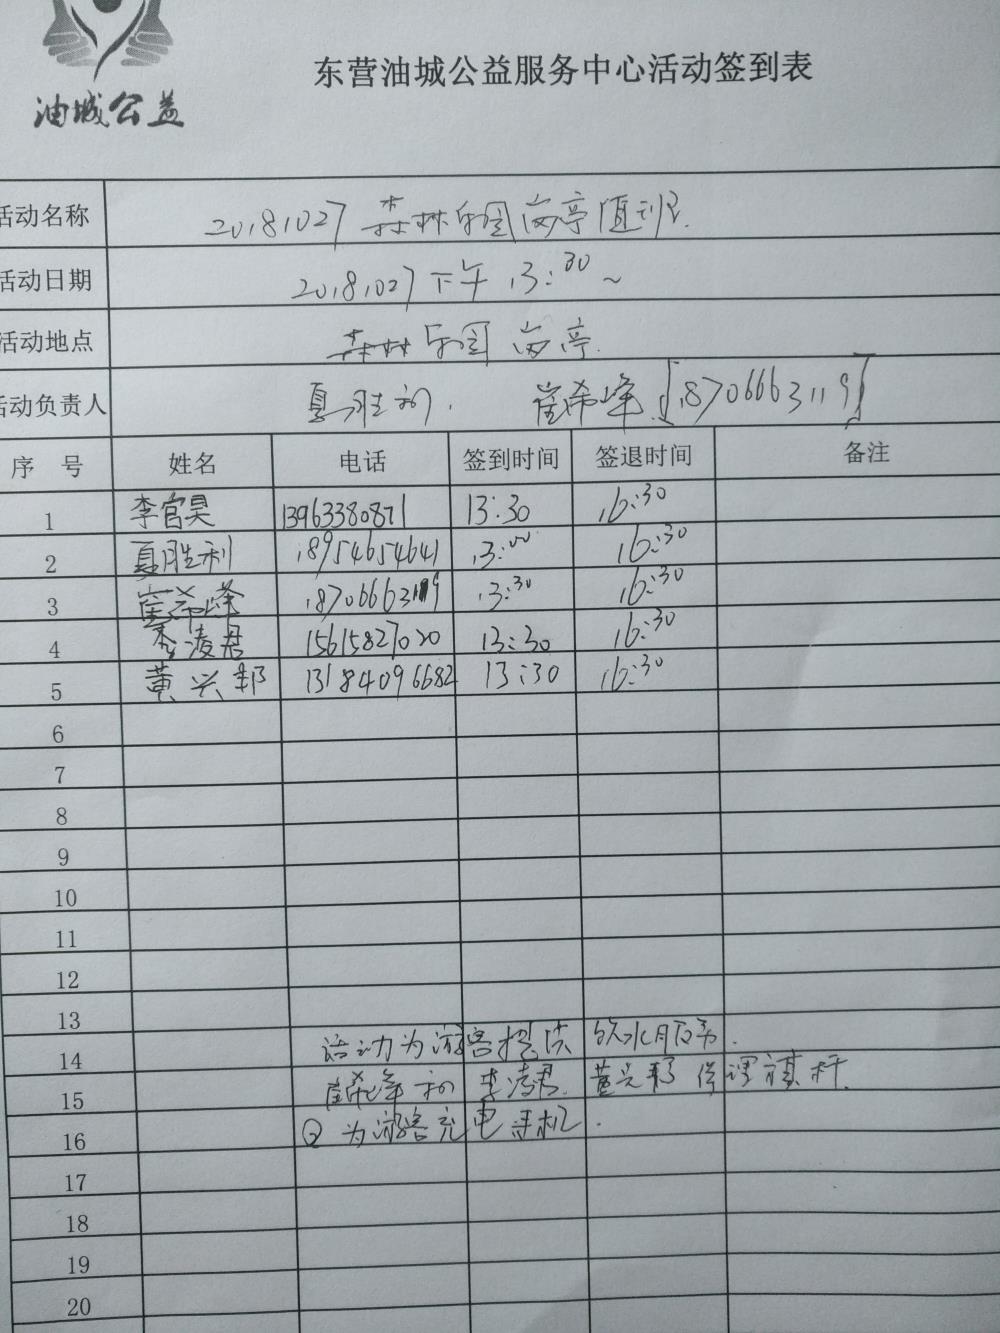 油城公益
东营油城公益服务中心活动签到表
活动名称 20181027 森林乐园岗亭值
活动日期 20181027下午 13:30~
活动地点 森林乐园岗亭.
活动负责人 夏胜利. 崔希峰[18706663119]
序号 姓名 电话 签到时间 签退时间 备注
1 李官昊 13963380871 13:30 16:30
2 夏胜利 18954654641 13:00 16:30
3 崔希峰 18706663119 13:30 16:30
4 李凌君 15615827020 13:30 16:30
5 黄兴邦 13184096682 13:30 16:30
6
7
8
9
10
11
12
13
14 活动为游客提供 饮水
15 崔希峰和 李凌君. 黄兴邦 修理旗杆.
16 ② 为游客充电手机.
17
18
19
20